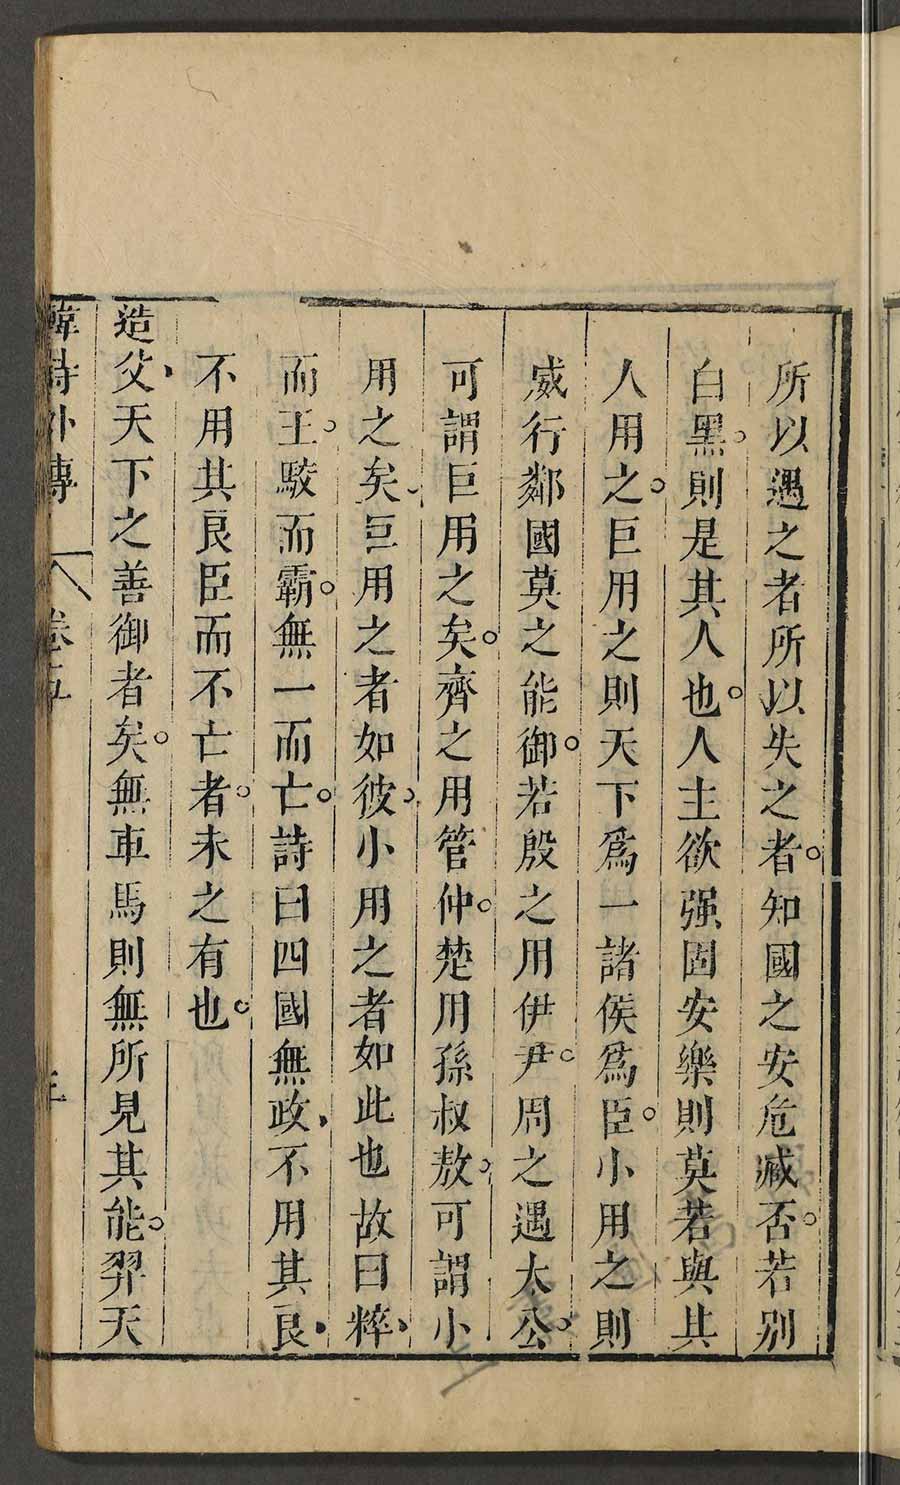 所以遇之者所以失之者。知國之安危臧否。若别
白黑。則是其人也。人主欲强固安樂則莫若與其
人用之。巨用之則天下爲一諸侯爲臣。小用之則
威行鄰國莫之能御。若殷之用伊尹。周之遇太公。
可謂巨用之矣。齊之用管仲。楚用孫叔敖。可謂小
用之矣、巨用之者如彼、小用之者如此也故曰粹、
而王。駁而霸。無一而亡。詩曰四國無政、不用其良、
不用其良臣而不亡者。未之有也。
造父、天下之善御者矣。無車馬則無所見其能。羿天
韓詩外傳 卷五